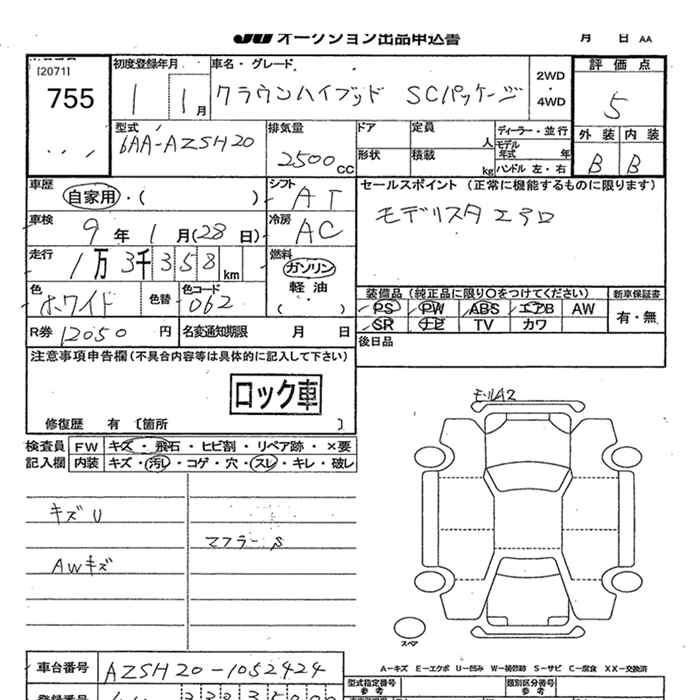 JU オークション出品申込書 月 日 AA
[2071]
755
初度登録年月 車名・グレード 2WD・4WD 評価点
1 1月 クラウンハイブッド SCパッケージ 5
型式 排気量 ドア 定員 人 ディーラー・並行 外装 内装
6AA-AZSH20 2500cc 形状 積載 kg モデル年式 年 ハンドル 左・右 B B
車歴 自家用・( ) シフト AT セールスポイント (正常に機能するものに限ります)
車検 9年 1月(28日) 冷房 AC モデリスタエアロ
走行 1万3千358km 燃料 ガソリン
軽油
( )
色 ホワイト 色替 色コード 062 装備品 (純正品に限り○をつけてください) 新車保証書
PS PW ABS エアB AW 有・無
SR ナビ TV カワ
R券 12050円 名変通知期限 月 日 後日品
注意事項申告欄(不具合内容等は具体的に記入して下さい)
ロック車
修復歴 有 〔箇所 〕
検査員 FW キズ・飛石・ヒビ割・リペア跡・×要
記入欄 内装 キズ・汚レ・コゲ・穴・スレ・キレ・破レ
キズU
マフラーS
AWキズ
スペア
車台番号 AZSH20-1052424
A-キズ E-エクボ U-凹み W-補修跡 S-サビ C-腐食 XX-交換済
型式指定番号 参考 類別区分番号 参考
登録番号